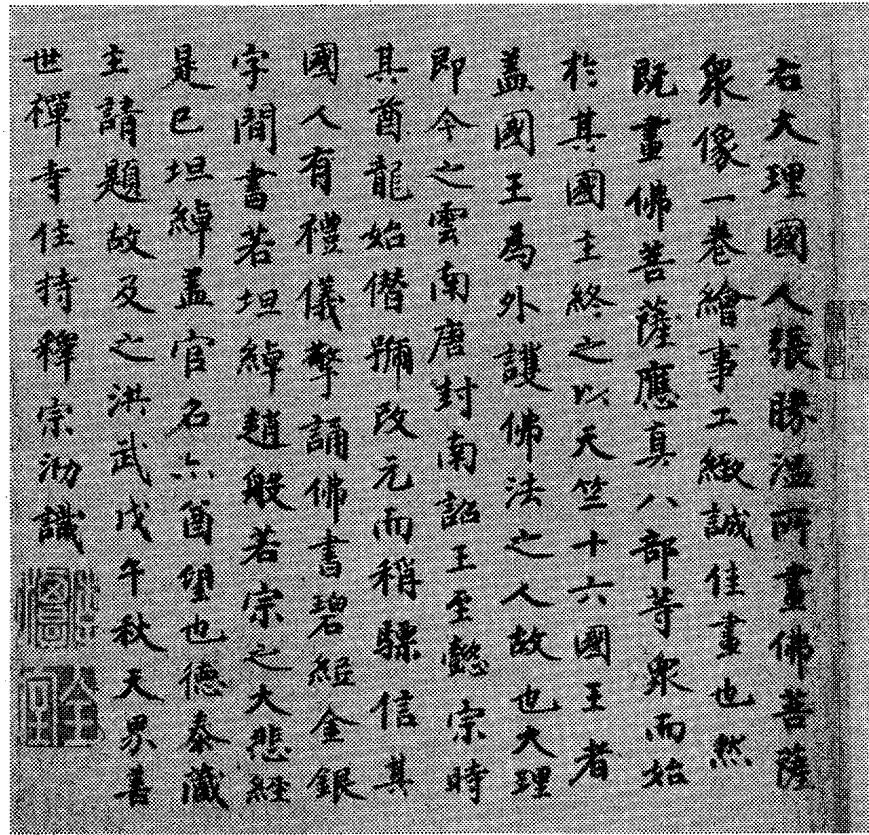 右大理國人張勝温所畫佛菩薩
衆像一卷繪事工緻誠佳畫也然
既畫佛菩薩應真八部等衆而始
於其國主終之以天竺十六國王者
盖國王為外護佛法之人故也大理
即今之雲南唐封南詔王至懿宗時
其酋龍始僭號改元而稱驃信其
國人有禮儀擎誦佛書碧紙金銀
字間書若坦綽趙般若宗之大悲經
是已坦綽盖官名六酋望也德泰藏
主請題故及之洪武戊午秋天界善
世禪寺住持釋宗泐識